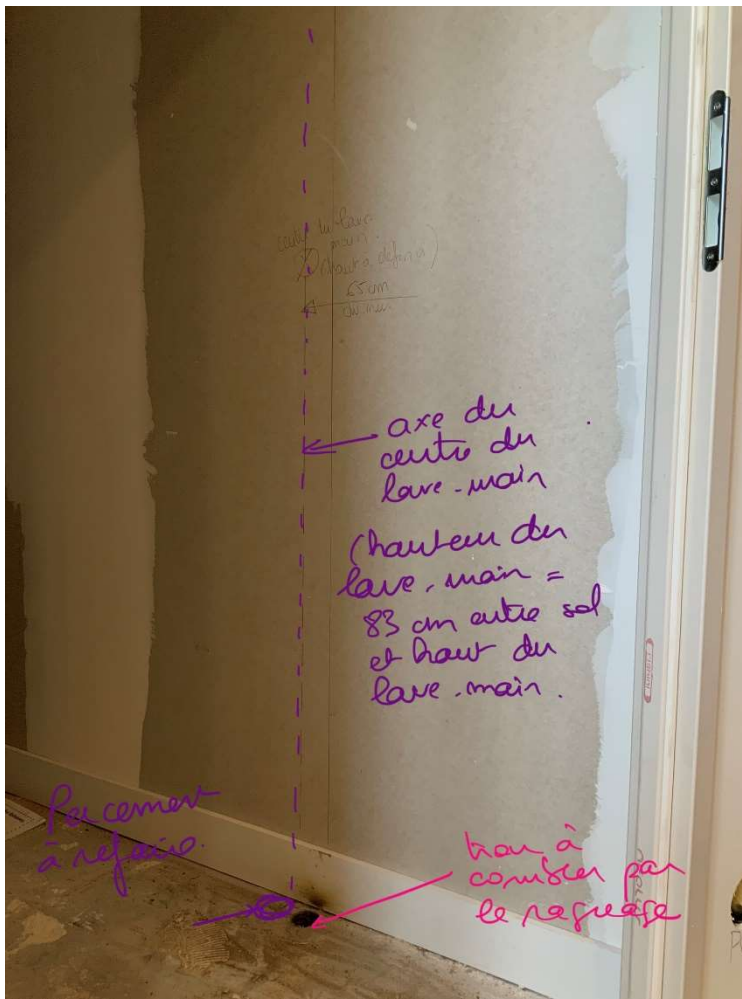 main
65 cm
du mur
axe du
centre du
lave-main
(hauteur du
lave-main =
83 cm entre sol
et haut du
lave-main.
Percement
à refaire.
trou à
combler par
le ragréage